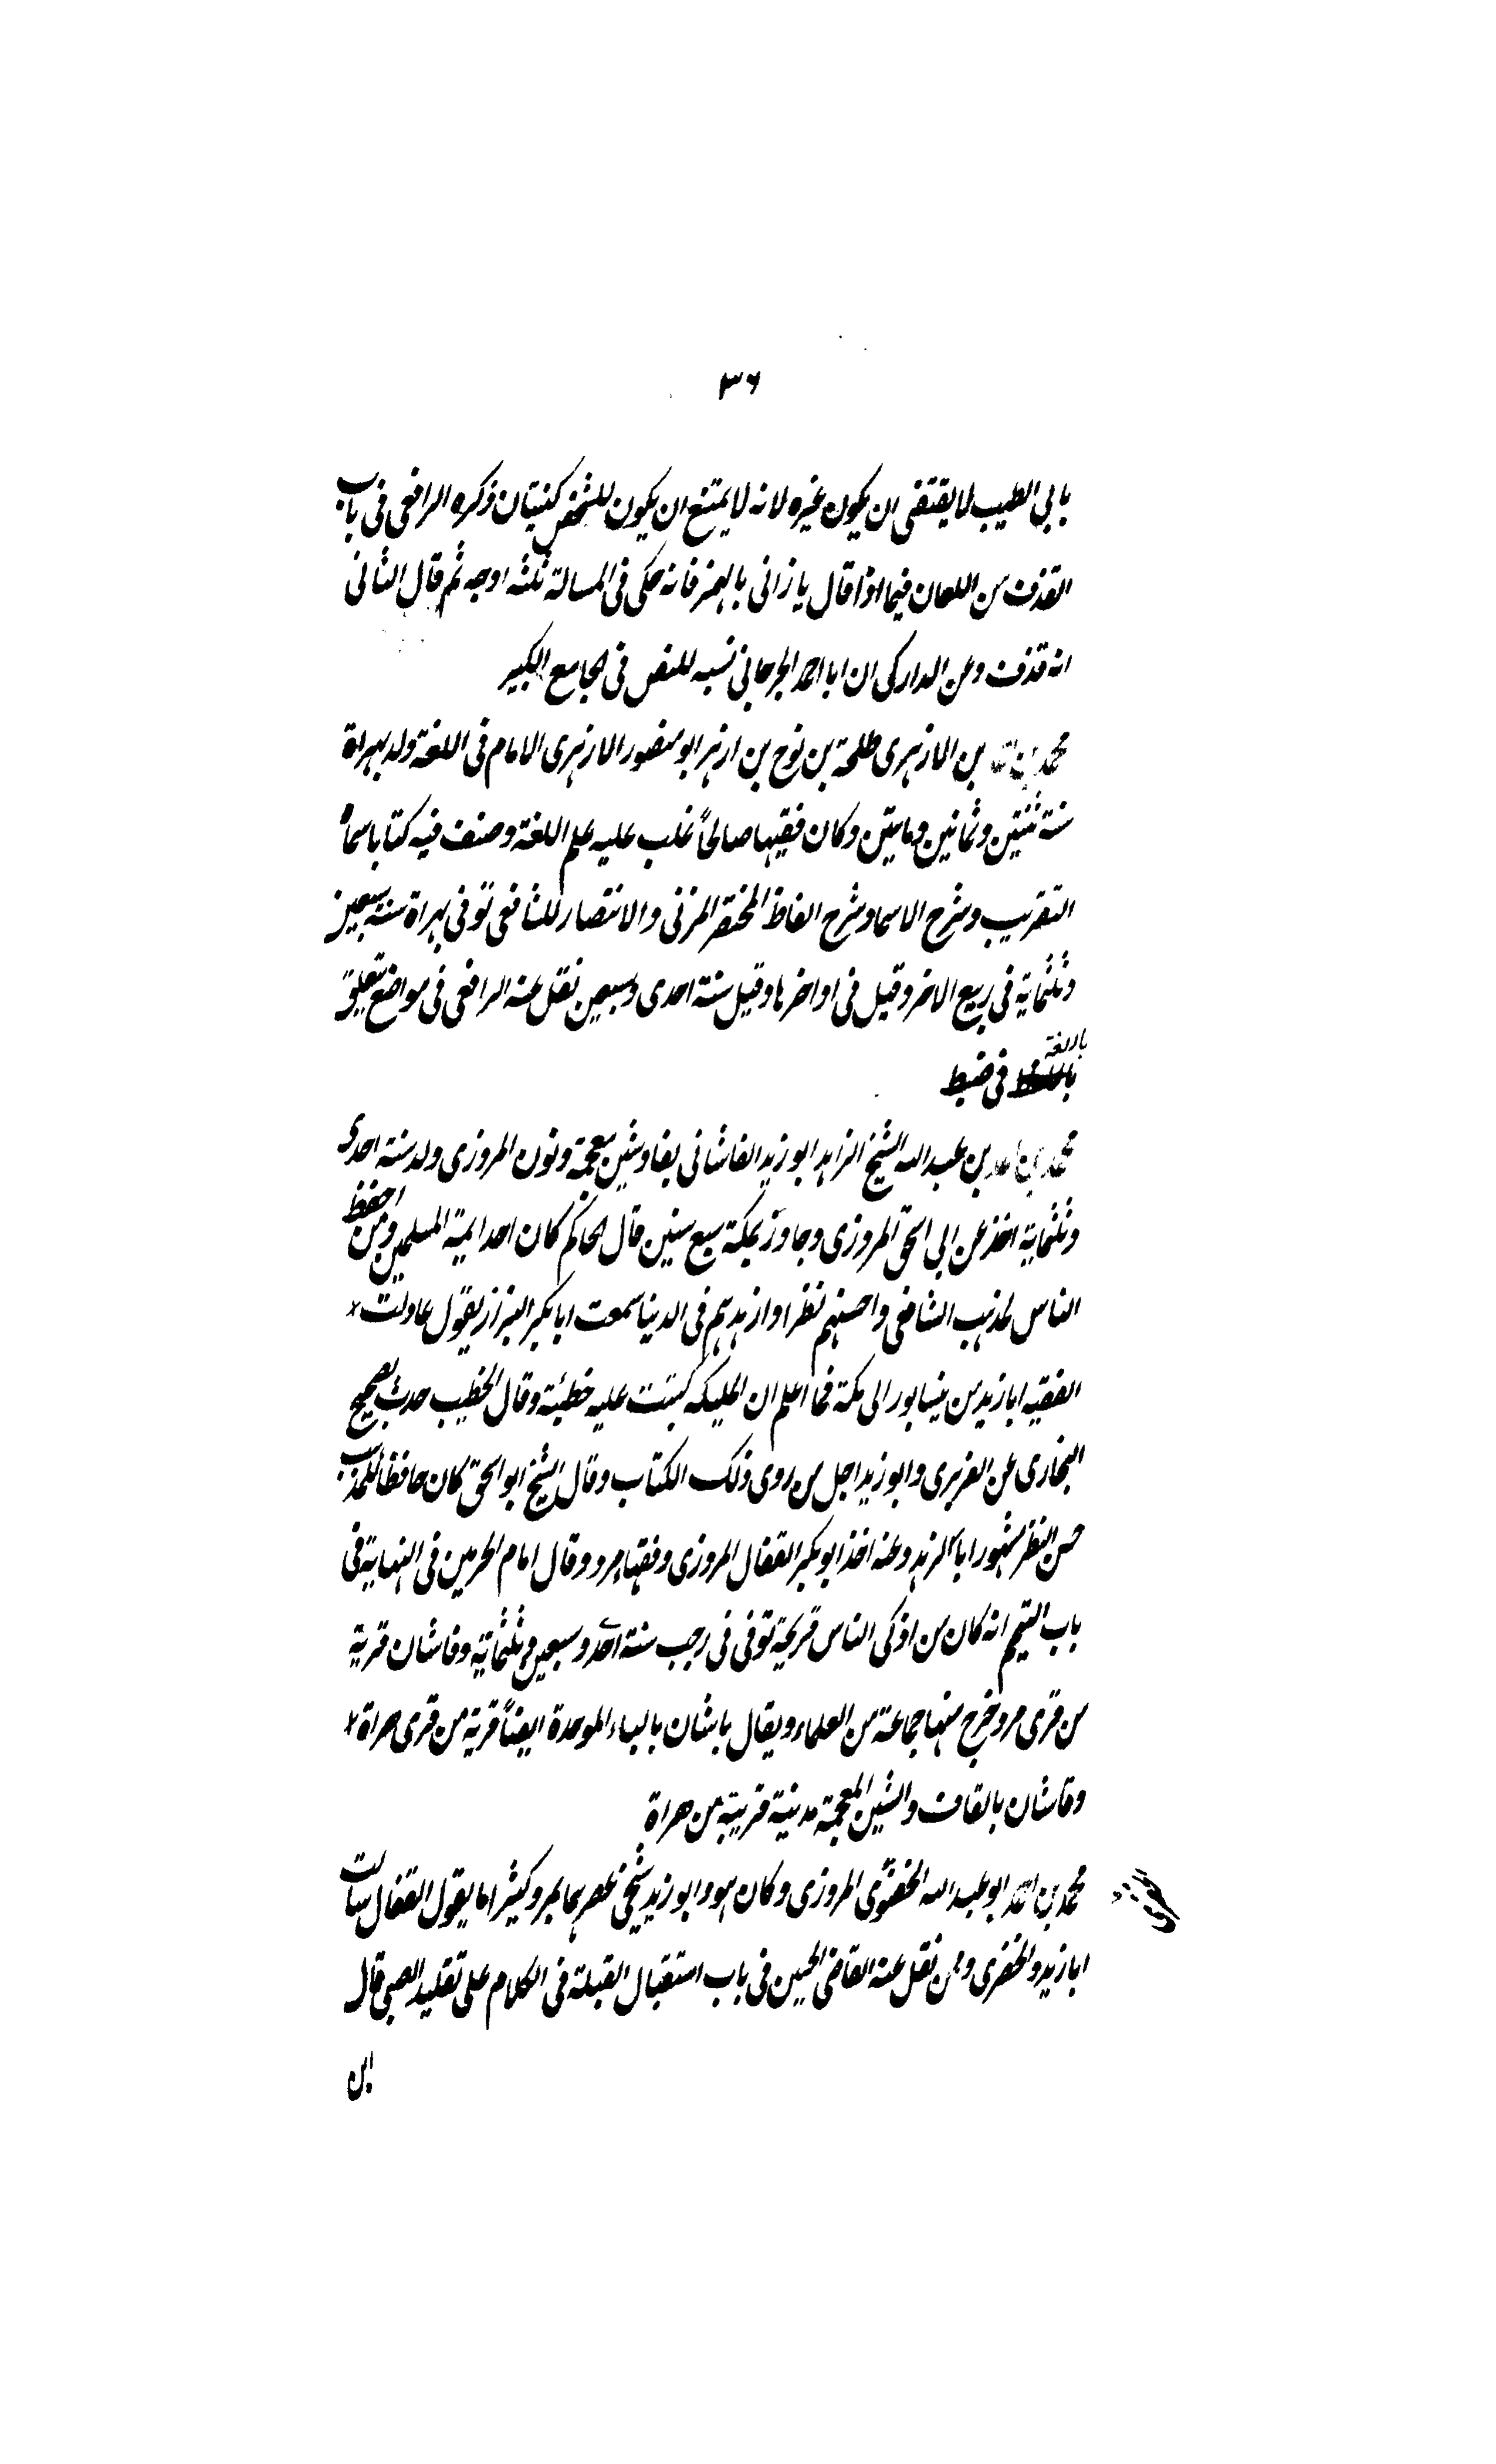 ٣٦
بابي الطيب لا يقتضى ان يكون غيره لانه لا يمتنع ان يكون للشخص كنيتان ذكره الرافعى فى باب
القذف من اللعان فيما اذا قال يا زانى بالهمز فانه حكى فى المسالة ثلثه اوجه ثم قال الثانى
انه قذف وعن الداركى ان ابا احمد الجرجانى نسبه للنص فى الجامع الكبير
محمد بن بن الازهرى طلحة بن نوح بن ازهر ابو منصور الازهرى الامام فى اللغة ولد بهراة
سنة ثنتين وثمانين ومايتين وكان فقيها صالحاً غلب عليه علم اللغة وصنف فيه كتابا سماه
التقريب وشرح الاسما وشرح الفاظ المختصر المزنى والانتصار للشافعى توفى بهراة سنة سبعين
وثلثماية فى ربيع الاخر وقيل فى اواخرها وقيل سنة احدى وسبعين نقل عنه الرافعى فى مواضع تتعلق
باللغة
فى ضبط
محمد بن احمد بن عبد الله الشيخ الزاهد ابو زيد الفاشانى بفا وشين معجمة ونون المروزى ولد سنة احدى
وثلثماية اخذ عن ابى اسحق المروزى وجاور بمكة سبع سنين قال الحاكم كان احد ايمة المسلمين ومن احفظ
الناس لمذهب الشافعى واحسنهم نظرا وازهدهم فى الدنيا سمعت ابا بكر البزاز يقول عادلت
الفقيه ابا زيد من نيسابور الى مكة فما اعلم ان المليكه كتبت عليه خطيئة وقال الخطيب حدث بصحيح
البخارى عن الفربرى وابو زيد اجل من روى ذلك الكتاب وقال الشيخ ابو اسحق كان حافظا للمذهب
حسن النظر مشهورا بالزهد وعنه اخذ ابو بكر القفال المروزى وفقهاء مرو وقال امام الحرمين فى النهاية فى
باب التيمم انه كان من اذكى الناس قريحة توفى فى رجب سنة احدى وسبعين وثلثماية وفاشان قرية
من قرى مرو خرج منها جماعة من العلماء ويقال باشان بالباء الموحدة ايضاً قرية من قرى هراة
وقاشان بالقاف والشين المعجمة مدينة قريبة من هراة
محمد بن احمد ابو عبد الله الخضرى المروزى وكان هو وابو زيد شيخى عصرهما بمرو وكثيرا ما يقول القفال سالت
ابا زيد والخضرى وممن نقل عنه القاضى الحسين فى باب استقبال القبلة فى الكلام على تقليد الصبى قال
ابن